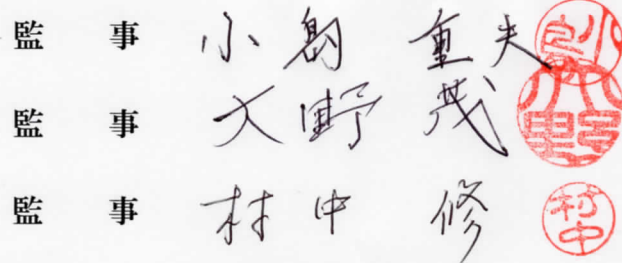 監事 小 重夫
監事 大野 茂 大野
監事 村中 修 村中